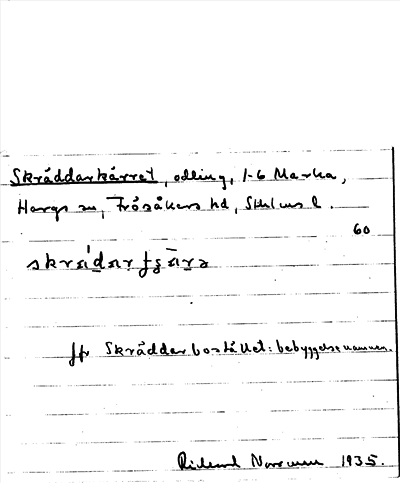 Skräddarkärret, odling, 1-6 Marka,
Hargs sn, Frösåkers hd, Sthlms l.
60
jfr Skräddarbostället: bebyggelsenamnen.
Rickard Norrman 1935.